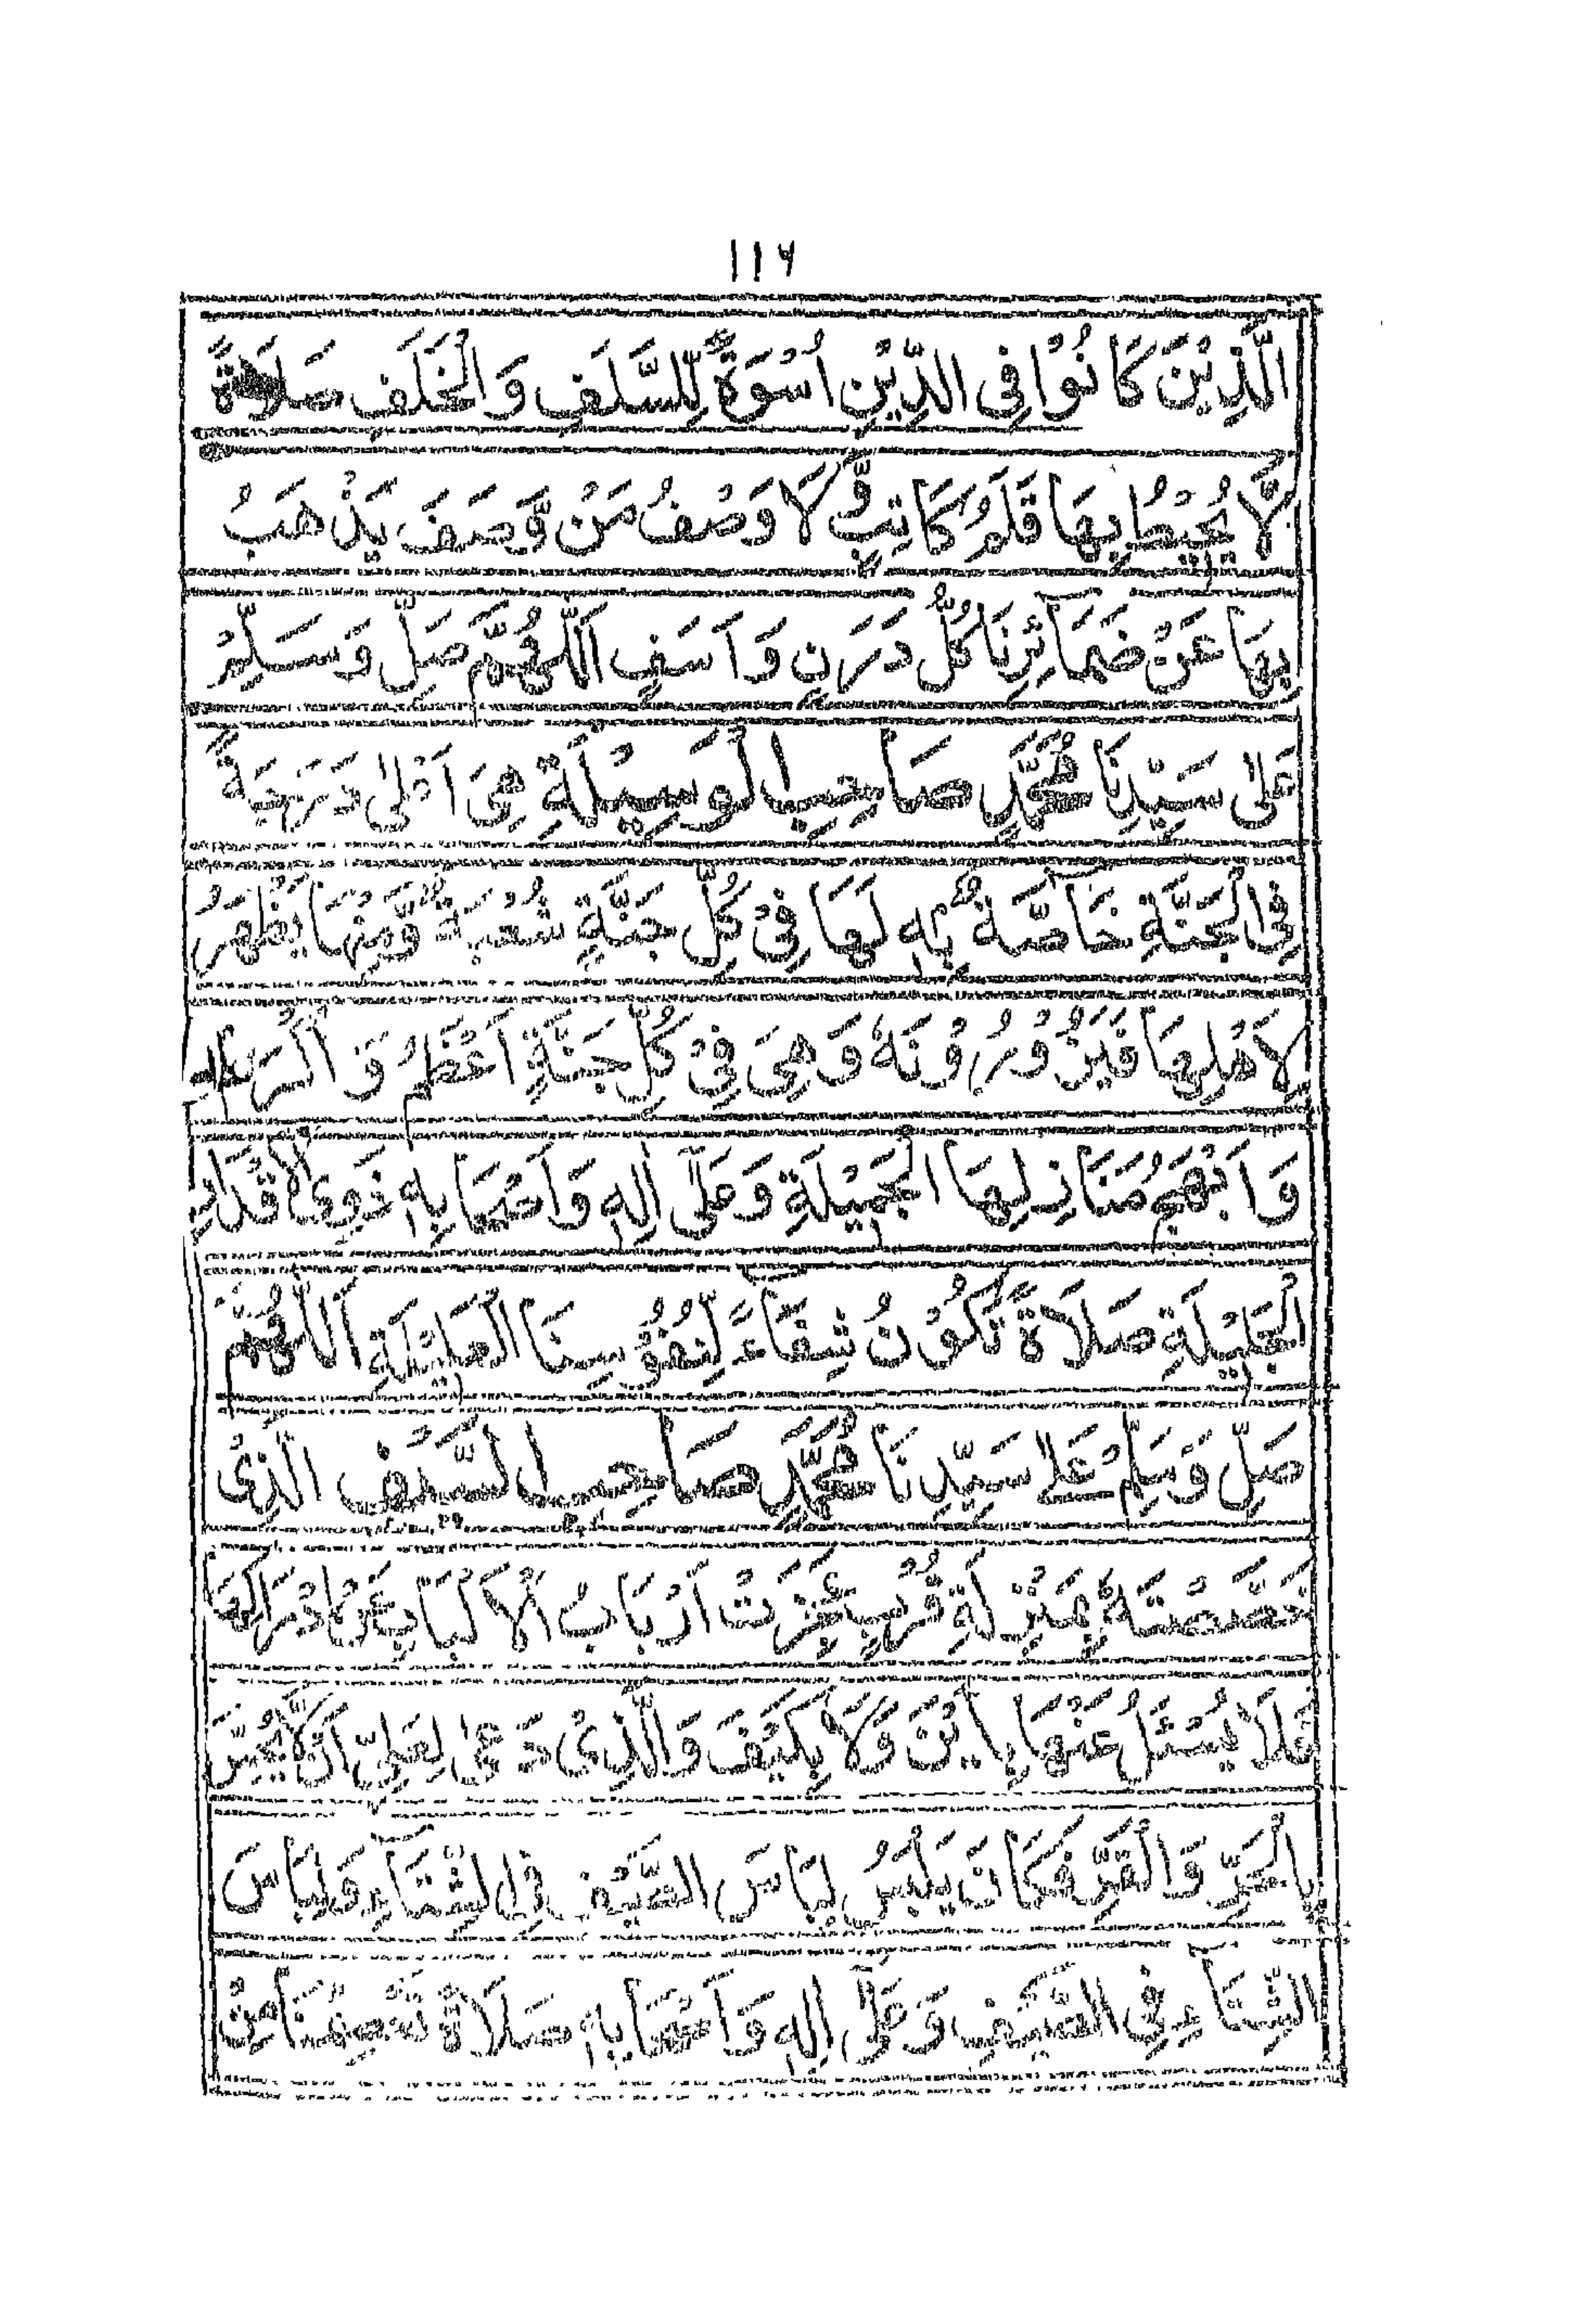 ١١٦
الَّذِيْنَ كَانُوْا فِي الدِّيْنِ اُسْوَةٌ لِّلسَّلَفِ وَالْخَلَفِ صَلَاةً
لَّا يُحِيْطُ بِهَا قَلَمُ كَاتِبٍ وَّلَا وَصْفُ مَنْ وَّصَفَ يَذْهَبُ
بِهَا عَنْ ضَمَائِرِنَا كُلُّ دَرَنٍ وَاَسَفٍ اَللّٰهُمَّ صَلِّ وَسَلِّمْ
عَلٰى سَيِّدِنَا مُحَمَّدٍ صَاحِبِ الْوَسِيْلَةِ هِيَ اَعْلٰى دَرَجَةً
فِي الْجَنَّةِ خَاصَّةٌ بِهٖ لَهَا فِيْ كُلِّ جَنَّةٍ شُعْبَةٌ وَّمِنْهَا يَظْهَرُ
لِاَهْلِهَا فَيَزُوْرُوْنَهٗ وَهِيَ فِيْ كُلِّ جَنَّةٍ اَعْظَمُ وَ
وَاَبْهَى مَنَازِلِهَا الْجَمِيْلَةِ وَعَلٰى اٰلِهٖ وَاَصْحَابِهٖ ذَوِي
الْجَلِيْلَةِ صَلَاةً تَكُوْنُ شِفَاءً لِّنُفُوْسِنَا الْعَلِيْلَةِ اَللّٰهُمَّ
صَلِّ وَسَلِّمْ عَلٰى سَيِّدِنَا مُحَمَّدٍ صَاحِبِ الشَّرَفِ الَّذِيْ
خَصَّصْتَهٗ بِمَنْزِلَةِ قُرْبٍ عَجَزَتْ اَرْبَابُ الْاَلْبَابِ عَنْ اِدْرَاكِهَا
فَلَا يُسْئَلُ عَنْهَا بِاَيْنَ وَلَا بِكَيْفَ وَالَّذِيْ دَعٰى لِعَلِيٍّ اَنْ لَّا يُضَرَّ
بِالْحَرِّ وَالْقَرِّ فَكَانَ يَلْبَسُ لِبَاسَ الصَّيْفِ فِي الشِّتَاءِ وَلِبَاسَ
الشِّتَاءِ فِي الصَّيْفِ وَعَلٰى اٰلِهٖ وَاَصْحَابِهٖ صَلَاةً